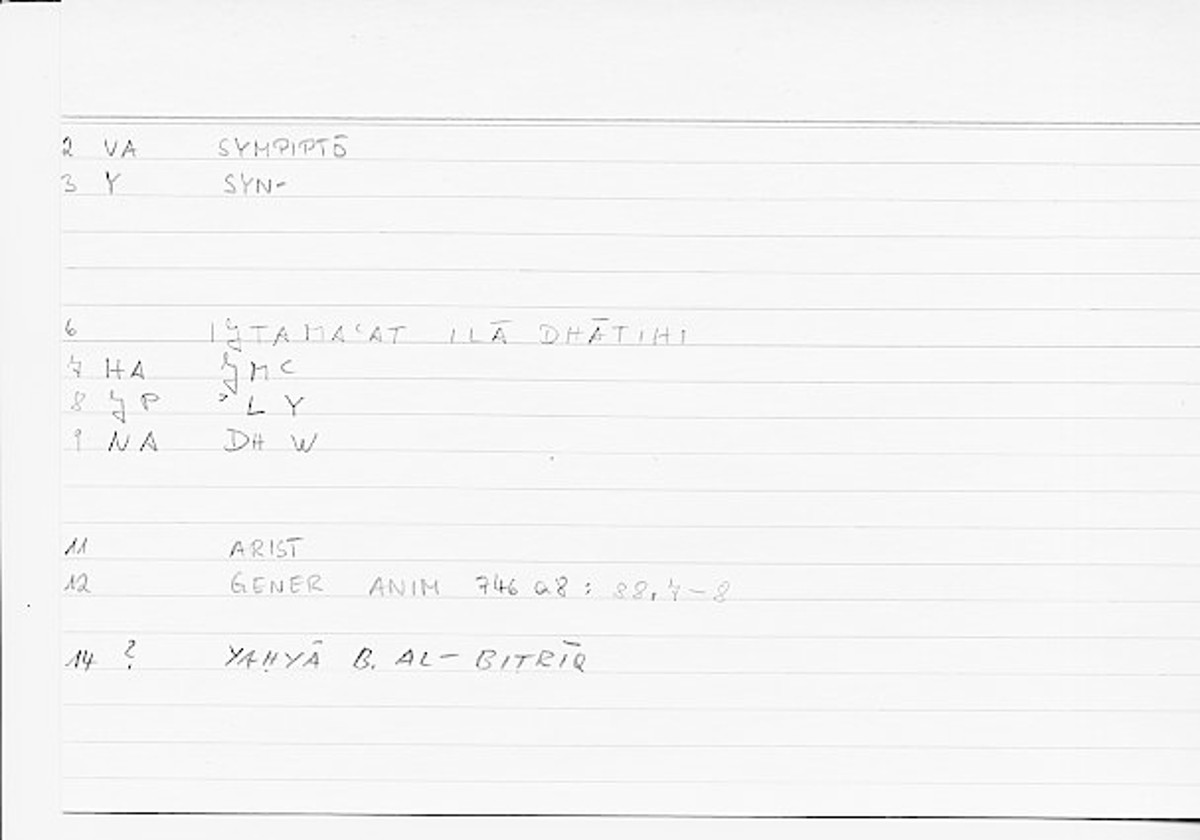 2 VA SYMPIPTŌ
3 Y SYN-
6 IJTAMAʿAT ILĀ DHĀTIHI
7 HA JMC
8 JP ʾLY
9 NA DH W
11 ARIST
12 GENER ANIM 746 a8 : 88,7-8
14 ? YAḤYĀ B. AL-BITRĪQ